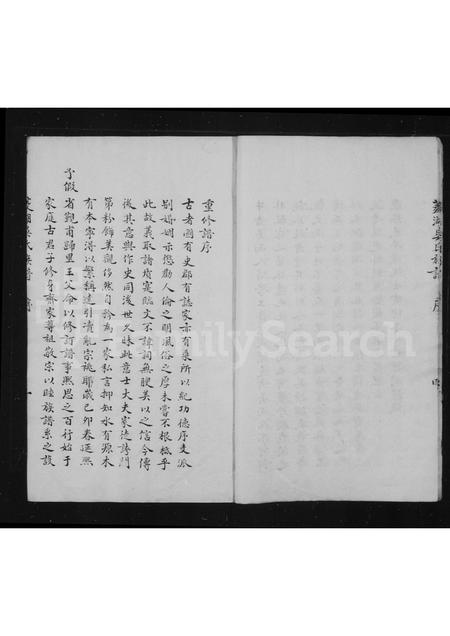 蕪湖吳氏族譜 序
重修譜序
古者國有史郡有誌家亦有乘所以紀功德序支派
別婚姻示懲勸人倫之明風俗之厚未嘗不根柢乎
此故義取諸實寔臨文不諱詞無腴美以之信今傳
後其意與作史同後世久昧此意士大夫家徒誇門
第粉飾美觀侈然自矜為一家私言抑知水有源木
有本寧得以繁稱遠引瀆亂宗祧聯歲己卯春廷熙
予假
省覲甫歸里王父命以修訂譜事熙思之百行始于
家庭古君子修身齊家尊祖敬宗以睦族譜系之設
氏族譜 序 一
FamilySearch